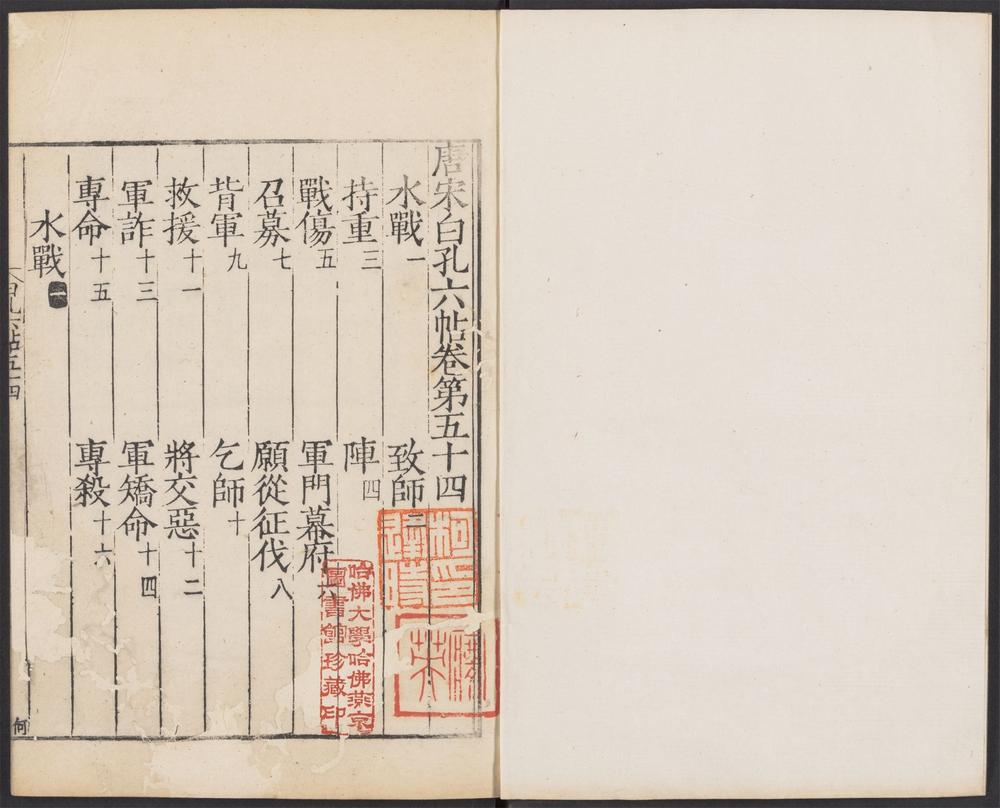 唐宋白孔六帖卷第五十四
水戰一 致師二
持重三 陣四
戰傷五 軍門幕府六
召募七 願從征伐八
背軍九 乞師十
救援十一 將交惡十二
軍詐十三 軍矯命十四
專命十五 專殺十六
水戰一
白孔六帖五十四
何
哈佛大學哈佛燕京
圖書館珍藏印